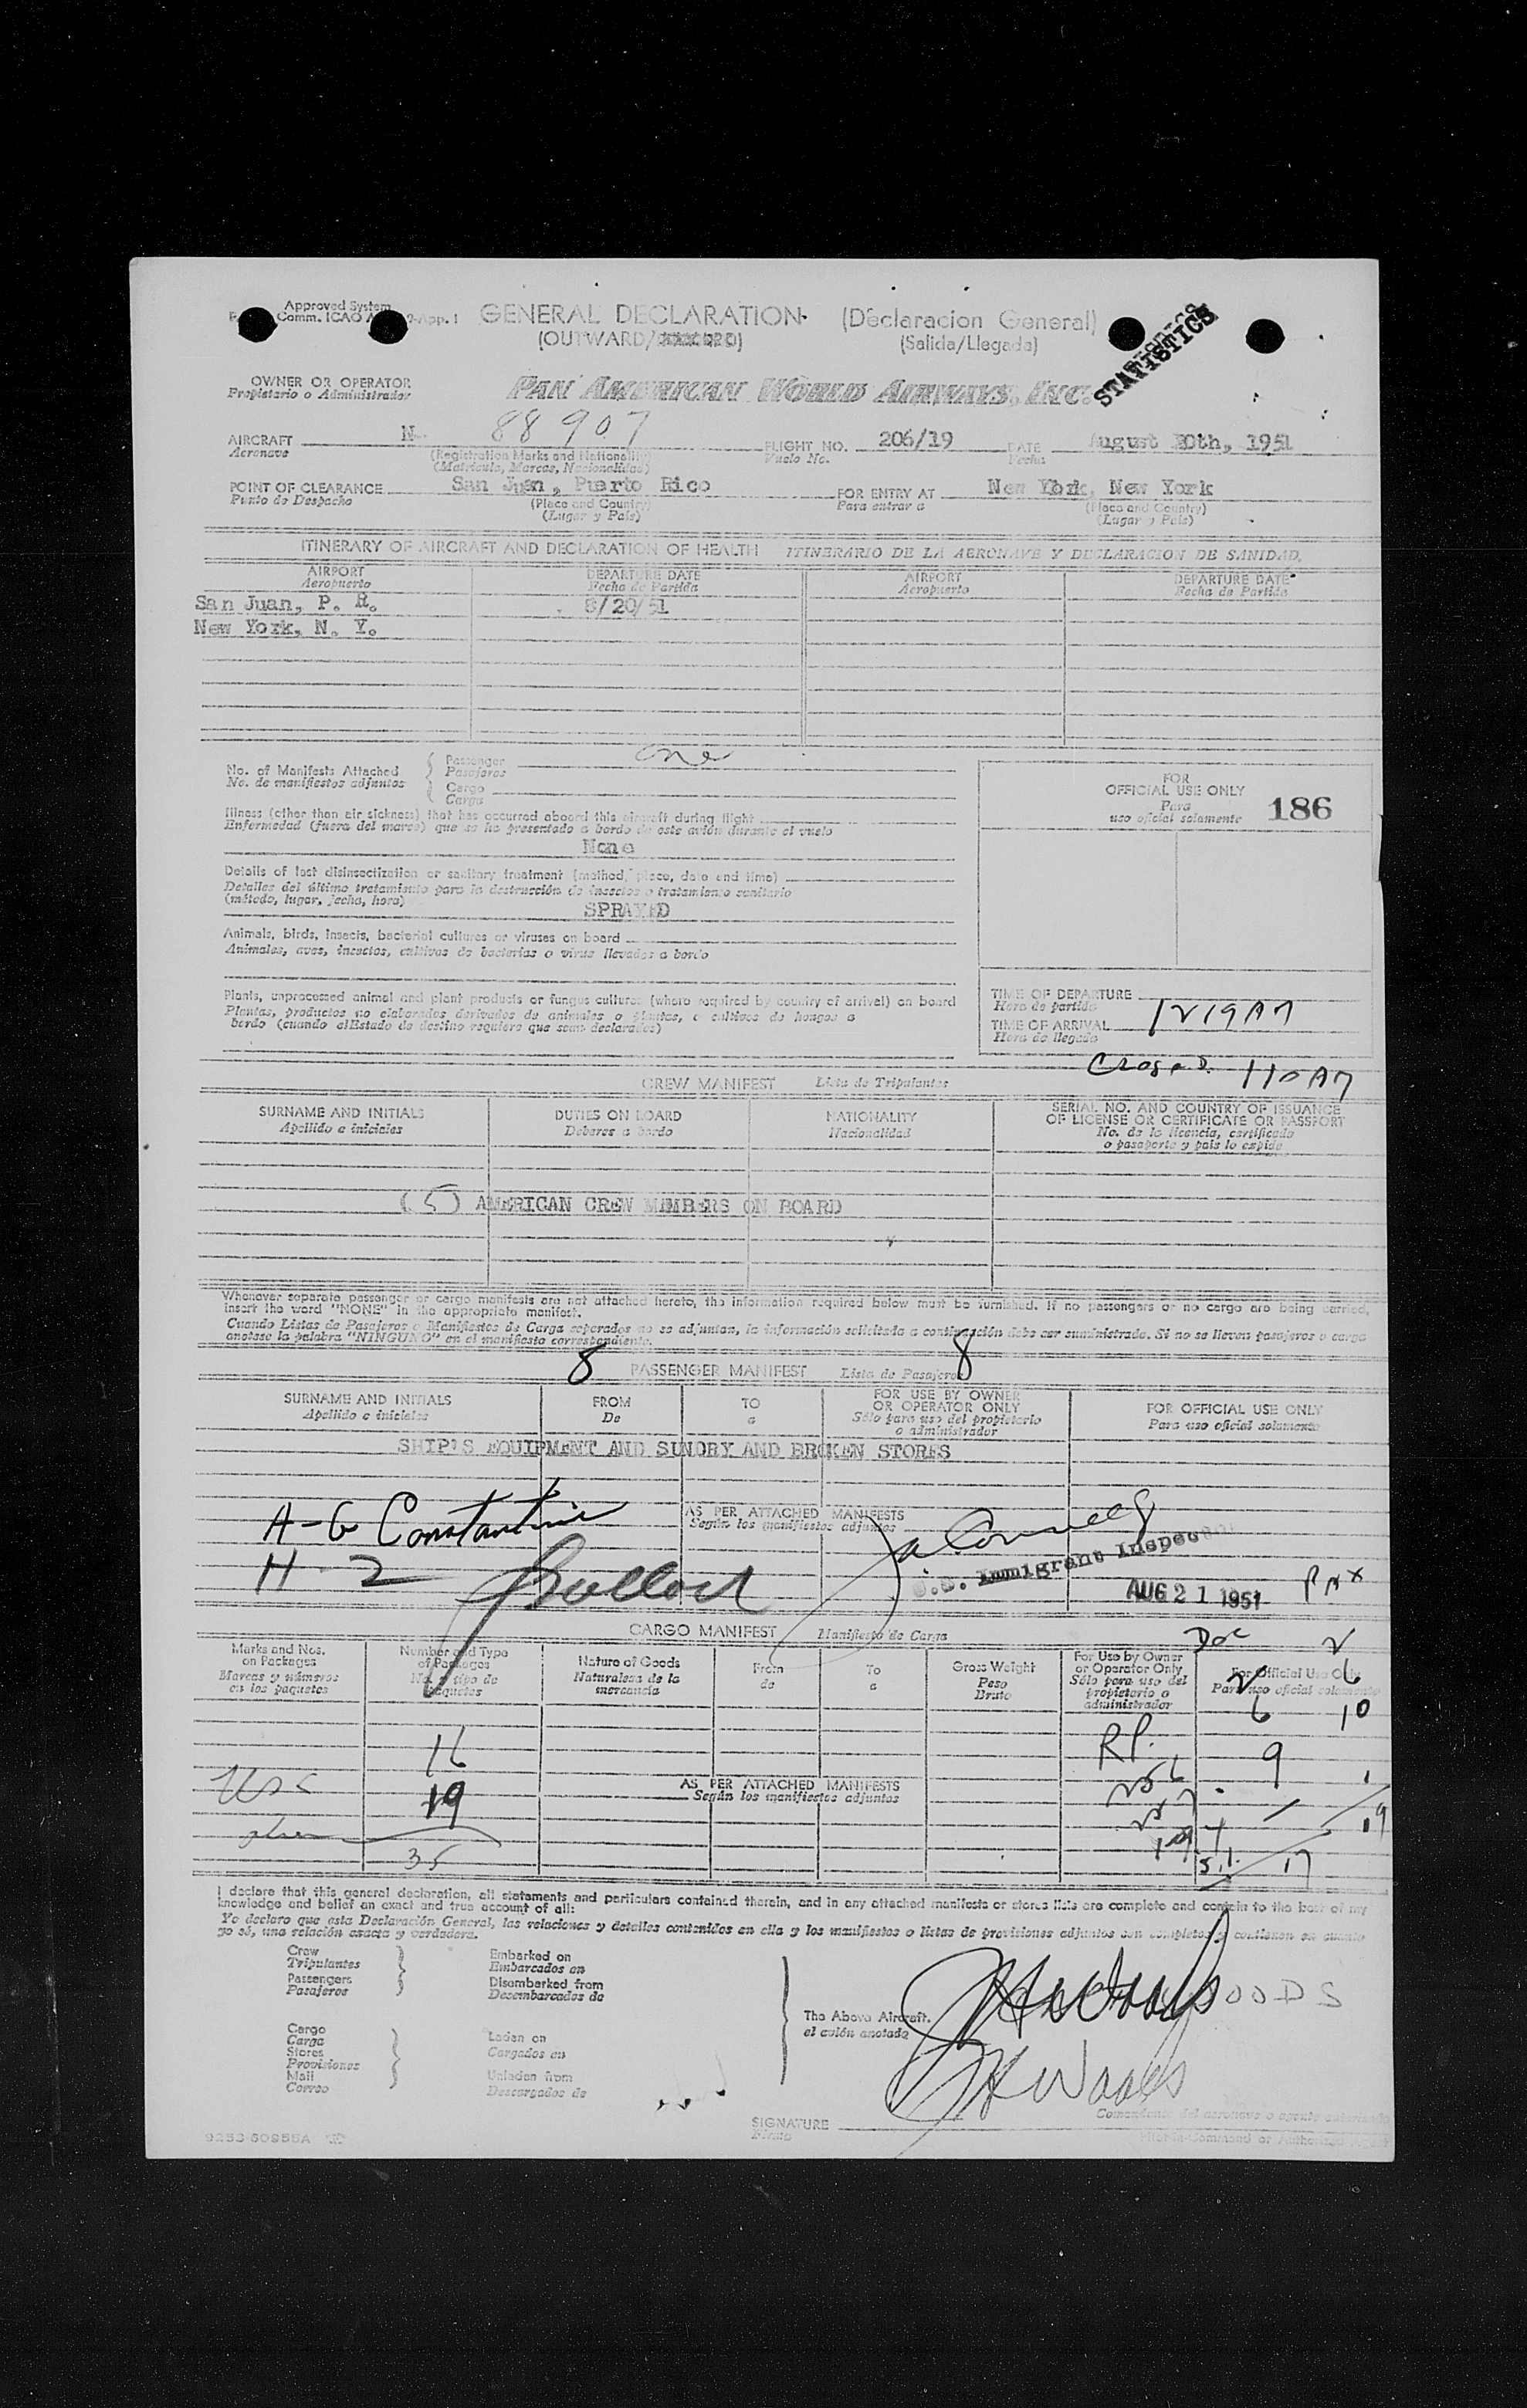 Approved System
Comm. ICAO
-App. I
GENERAL DECLARATION (Declaracion General)
(OUTWARD/ (Salida/Llegada)
STATISTICS
OWNER OR OPERATOR
Propietario o Administrador
PAN AMERICAN WORLD AIRWAYS, INC.
AIRCRAFT N- 88907 FLIGHT NO. 206/19 DATE August 20th, 1951
Aeronave (Registration Marks and Nationality) Vuelo No. Fecha
(Matricula, Marcas, Nacionalidad)
POINT OF CLEARANCE San Juan, Puerto Rico FOR ENTRY AT New York, New York
Punto de Despacho (Place and Country) Para entrar a (Place and Country)
(Lugar y Pais) (Lugar y Pais)
ITINERARY OF AIRCRAFT AND DECLARATION OF HEALTH ITINERARIO DE LA AERONAVE Y DECLARACION DE SANIDAD.
AIRPORT DEPARTURE DATE AIRPORT DEPARTURE DATE
Aeropuerto Fecha de Partida Aeropuerto Fecha de Partida
San Juan, P. R. 8/20/51
New York, N. Y.
No. of Manifests Attached { Passenger one
No. de manifiestos adjuntos Pasajeros
{ Cargo
Carga
FOR
OFFICIAL USE ONLY
Para
uso oficial solamente 186
Illness (other than air sickness) that has occurred aboard this aircraft during flight
Enfermedad (fuera del mareo) que se ha presentado a bordo de este avión durante el vuelo
None
Details of last disinsectization or sanitary treatment (method, place, date and time)
Detalles del último tratamiento para la destrucción de insectos o tratamiento sanitario
(método, lugar, fecha, hora)
SPRAYED
Animals, birds, insects, bacterial cultures or viruses on board
Animales, aves, insectos, cultivos de bacterias o virus llevados a bordo
Plants, unprocessed animal and plant products or fungus cultures (where required by country of arrival) on board
Plantas, productos no elaborados derivados de animales o plantas, o cultivos de hongos a
bordo (cuando el Estado de destino requiere que sean declarados)
TIME OF DEPARTURE
Hora de partida
TIME OF ARRIVAL 1219AM
Hora de llegada
Closed. 110AM
CREW MANIFEST Lista de Tripulantes
SURNAME AND INITIALS DUTIES ON BOARD NATIONALITY SERIAL NO. AND COUNTRY OF ISSUANCE
OF LICENSE OR CERTIFICATE OR PASSPORT
Apellido e iniciales Deberes a bordo Nacionalidad No. de la licencia, certificado
o pasaporte y pais lo expide
(5) AMERICAN CREW MEMBERS ON BOARD
Whenever separate passenger or cargo manifests are not attached hereto, the information required below must be furnished. If no passengers or no cargo are being carried,
insert the word "NONE" in the appropriate manifest.
Cuando Listas de Pasajeros o Manifiestos de Carga separados no se adjuntan, la información solicitada a continuación debe ser suministrada. Si no se llevan pasajeros o carga
anotese la palabra "NINGUNO" en el manifiesto correspondiente.
8 PASSENGER MANIFEST Lista de Pasajeros 8
SURNAME AND INITIALS FROM TO FOR USE BY OWNER
OR OPERATOR ONLY FOR OFFICIAL USE ONLY
Apellido e iniciales De a Sólo para uso del propietario
o administrador Para uso oficial solamente
SHIP'S EQUIPMENT AND SUNDRY AND BROKEN STORES
A-G Constantine
AS PER ATTACHED MANIFESTS
Según los manifiestos adjuntos
H-2
Immigrant Inspector
AUG 21 1951
PAX
CARGO MANIFEST Manifiesto de Carga
Doc 2
Marks and Nos.
on Packages
Marcas y números
en los paquetes
Number and Type
of Packages
No. y tipo de
paquetes
Nature of Goods
Naturaleza de la
mercancia
From
de
To
a
Gross Weight
Peso
Bruto
For Use by Owner
or Operator Only
Sólo para uso del
propietario o
administrador
For Official Use Only
Para uso oficial solamente
2 6
6 10
16 R.P. 9 1
19 19
AS PER ATTACHED MANIFESTS
Según los manifiestos adjuntos
35 17
I declare that this general declaration, all statements and particulars contained therein, and in any attached manifests or stores lists are complete and contain to the best of my
knowledge and belief an exact and true account of all:
Yo declaro que esta Declaración General, las relaciones y detalles contenidos en ella y los manifiestos o listas de provisiones adjuntos son completos y contienen en cuanto
yo sé, una relación exacta y verdadera.
Crew
Tripulantes
Passengers
Pasajeros
Embarked on
Embarcados en
Disembarked from
Desembarcados de
Cargo
Carga
Stores
Provisiones
Mail
Correo
Laden on
Cargados en
Unladen from
Descargados de
The Above Aircraft.
el avión anotado
OODS
Woods
SIGNATURE
Firma
Comandante del aeronave o agente autorizado
Pilot-in-Command or Authorized